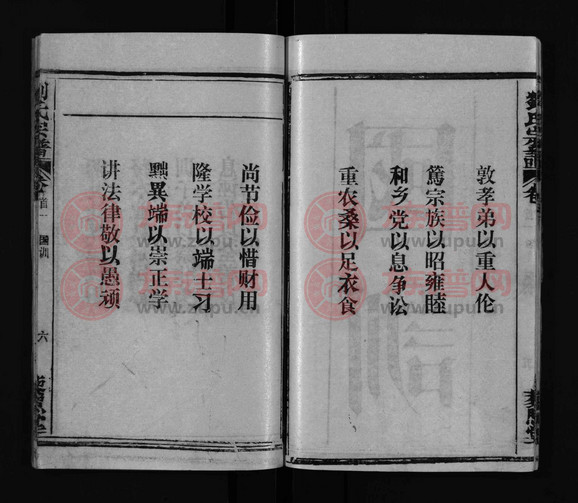 敦孝弟以重人伦
篤宗族以昭雍睦
和乡党以息争讼
重农桑以足衣食
尚节俭以惜财用
隆学校以端士习
黜異端以崇正学
讲法律敬以愚顽
劉氏宗譜
卷首
国训
六
族谱网
www.zupu.cn